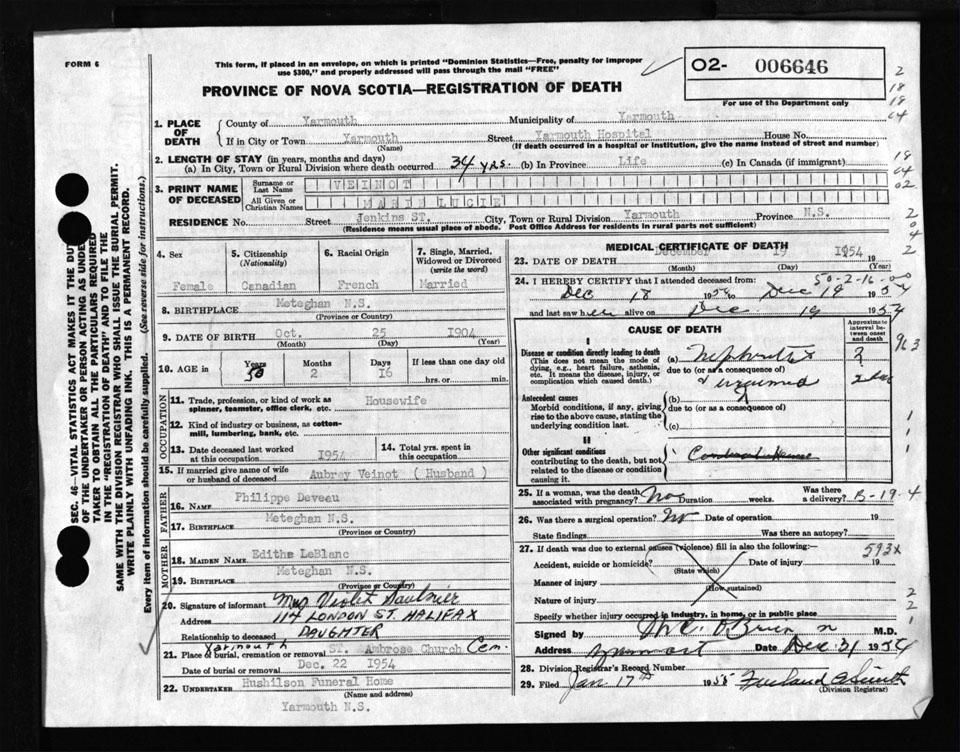 FORM 6
This form, if placed in an envelope, on which is printed "Dominion Statistics—Free, penalty for improper
use $300," and properly addressed will pass through the mail "FREE"
O2- 006646
For use of the Department only
PROVINCE OF NOVA SCOTIA—REGISTRATION OF DEATH
1. PLACE OF DEATH
County of Yarmouth Municipality of Yarmouth
If in City or Town Yarmouth Street Yarmouth Hospital House No.
(Name) (If death occurred in a hospital or institution, give the name instead of street and number)
2. LENGTH OF STAY (in years, months and days)
(a) In City, Town or Rural Division where death occurred 34 yrs. (b) In Province Life (c) In Canada (if immigrant)
3. PRINT NAME OF DECEASED
Surname or Last Name VEINOT
All Given or Christian Names MARIE LUCIE
RESIDENCE No. Street Jenkins ST. City, Town or Rural Division Yarmouth Province N.S.
(Residence means usual place of abode. Post Office Address for residents in rural parts not sufficient)
4. Sex
Female
5. Citizenship (Nationality)
Canadian
6. Racial Origin
French
7. Single, Married, Widowed or Divorced (write the word)
Married
8. BIRTHPLACE Meteghan N.S.
(Province or Country)
9. DATE OF BIRTH Oct. 25 1904
(Month) (Day) (Year)
10. AGE in Years 50 Months 2 Days 16 If less than one day old
hrs. or min.
OCCUPATION
11. Trade, profession, or kind of work as Housewife
spinner, teamster, office clerk, etc.
12. Kind of industry or business, as cotton-
mill, lumbering, bank, etc.
13. Date deceased last worked at this occupation 1954
14. Total yrs. spent in this occupation
15. If married give name of wife or husband of deceased Aubrey Veinot (Husband)
FATHER
16. NAME Philippe Deveau
17. BIRTHPLACE Meteghan N.S.
(Province or Country)
MOTHER
18. MAIDEN NAME Edithe LeBlanc
19. BIRTHPLACE Meteghan N.S.
(Province or Country)
20. Signature of informant Mrs Violet Saulnier
Address 114 LONDON ST. HALIFAX
Relationship to deceased DAUGHTER
Yarmouth
21. Place of burial, cremation or removal ST. Ambrose Church Cem.
Date of burial or removal Dec. 22 1954
22. UNDERTAKER Hushilson Funeral Home
(Name and address)
Yarmouth N.S.
MEDICAL CERTIFICATE OF DEATH
23. DATE OF DEATH December 19 1954 19
(Month) (Day) (Year)
24. I HEREBY CERTIFY that I attended deceased from: 50-2-16-0
Dec 18 1954 to Dec 19 1954
and last saw her alive on Dec. 19 1954
CAUSE OF DEATH
Approximate interval between onset and death
I
Disease or condition directly leading to death
(This does not mean the mode of dying, e.g., heart failure, asthenia, etc. It means the disease, injury, or complication which caused death.)
(a) Nephritis ?
due to (or as a consequence of)
Antecedent causes
Morbid conditions, if any, giving rise to the above cause, stating the underlying condition last.
(b)
due to (or as a consequence of)
(c)
II
Other significant conditions
contributing to the death, but not related to the disease or condition causing it.
25. If a woman, was the death associated with pregnancy? No Duration weeks. Was there a delivery? B-19-4
26. Was there a surgical operation? No Date of operation 19
State findings Was there an autopsy?
27. If death was due to external causes (violence) fill in also the following: 593x
Accident, suicide or homicide? Date of injury 19
(State which)
Manner of injury
(How sustained)
Nature of injury
Specify whether injury occurred in industry, in home, or in public place
Signed by O'Brien M.D.
Address Yarmouth Date Dec 31 1954
28. Division Registrar's Record Number
29. Filed Jan 17th 1955
(Division Registrar)
SEC. 46—VITAL STATISTICS ACT MAKES IT THE DUTY
OF THE UNDERTAKER OR PERSON ACTING AS UNDER-
TAKER TO OBTAIN ALL THE PARTICULARS REQUIRED
IN THE "REGISTRATION OF DEATH" AND TO FILE THE
SAME WITH THE DIVISION REGISTRAR WHO SHALL ISSUE THE BURIAL PERMIT.
WRITE PLAINLY WITH UNFADING INK. THIS IS A PERMANENT RECORD.
Every item of information should be carefully supplied. (See reverse side for instructions.)
2
18
18
04
18
04
02
2
0
04
2
963
1
1
1
2
2
1